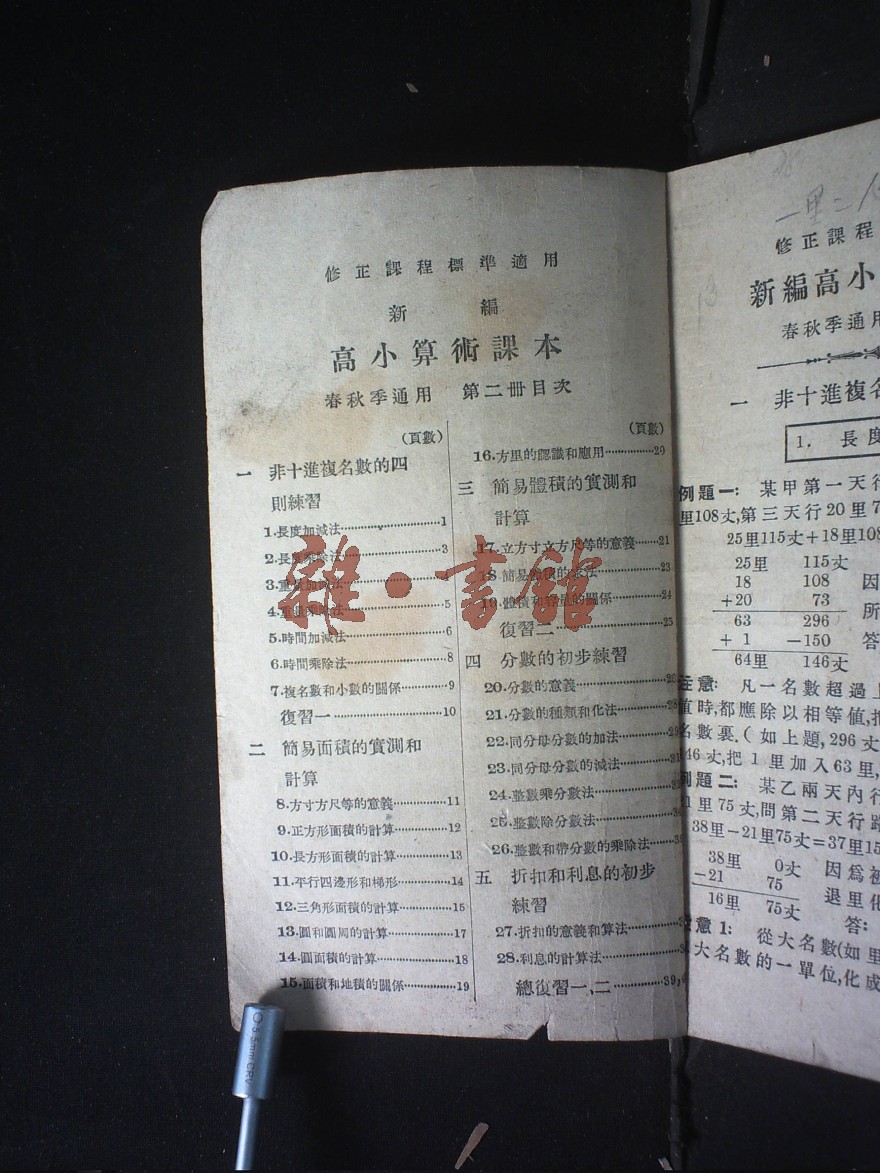 修正課程標準適用
新編
高小算術課本
春秋季通用 第二冊目次
(頁數)
一 非十進複名數的四
則練習
1.長度加減法…………1
2.長度乘除法…………3
3.重量加減法…………4
4.重量乘除法…………5
5.時間加減法…………6
6.時間乘除法…………8
7.複名數和小數的關係…………9
復習一…………10
二 簡易面積的實測和
計算
8.方寸方尺等的意義…………11
9.正方形面積的計算…………12
10.長方形面積的計算…………13
11.平行四邊形和梯形…………14
12.三角形面積的計算…………15
13.圓和圓周的計算…………17
14.圓面積的計算…………18
15.面積和地積的關係…………19
(頁數)
16.方里的認識和應用…………20
三 簡易體積的實測和
計算
17.立方寸立方尺等的意義……21
18.簡易體積的求法…………23
19.體積和容量的關係…………24
復習二…………25
四 分數的初步練習
20.分數的意義…………
21.分數的種類和化法…………28
22.同分母分數的加法…………
23.同分母分數的減法…………
24.整數乘分數法…………
25.整數除分數法…………
26.整數和帶分數的乘除法……
五 折扣和利息的初步
練習
27.折扣的意義和算法…………
28.利息的計算法…………
總復習一,二…………39,
雜·書館
一里=
修正課程
新編高小
春秋季通用
一 非十進複名
1. 長度
例題一: 某甲第一天行
里108丈,第三天行20里7
25里115丈+18里108
25里 115丈
18 108 因
+20 73 所
63 296
+ 1 -150 答
64里 146丈
注意: 凡一名數超過上
值時,都應除以相等值,把
名數裏.(如上題,296丈
146丈,把1里加入63里,
例題二: 某乙兩天內行
21里75丈,問第二天行路
38里-21里75丈=37里15
38里 0丈 因爲被
-21 75 退里化
16里 75丈 答:
注意1: 從大名數(如里
大名數的一單位,化成
5.5mm CRV